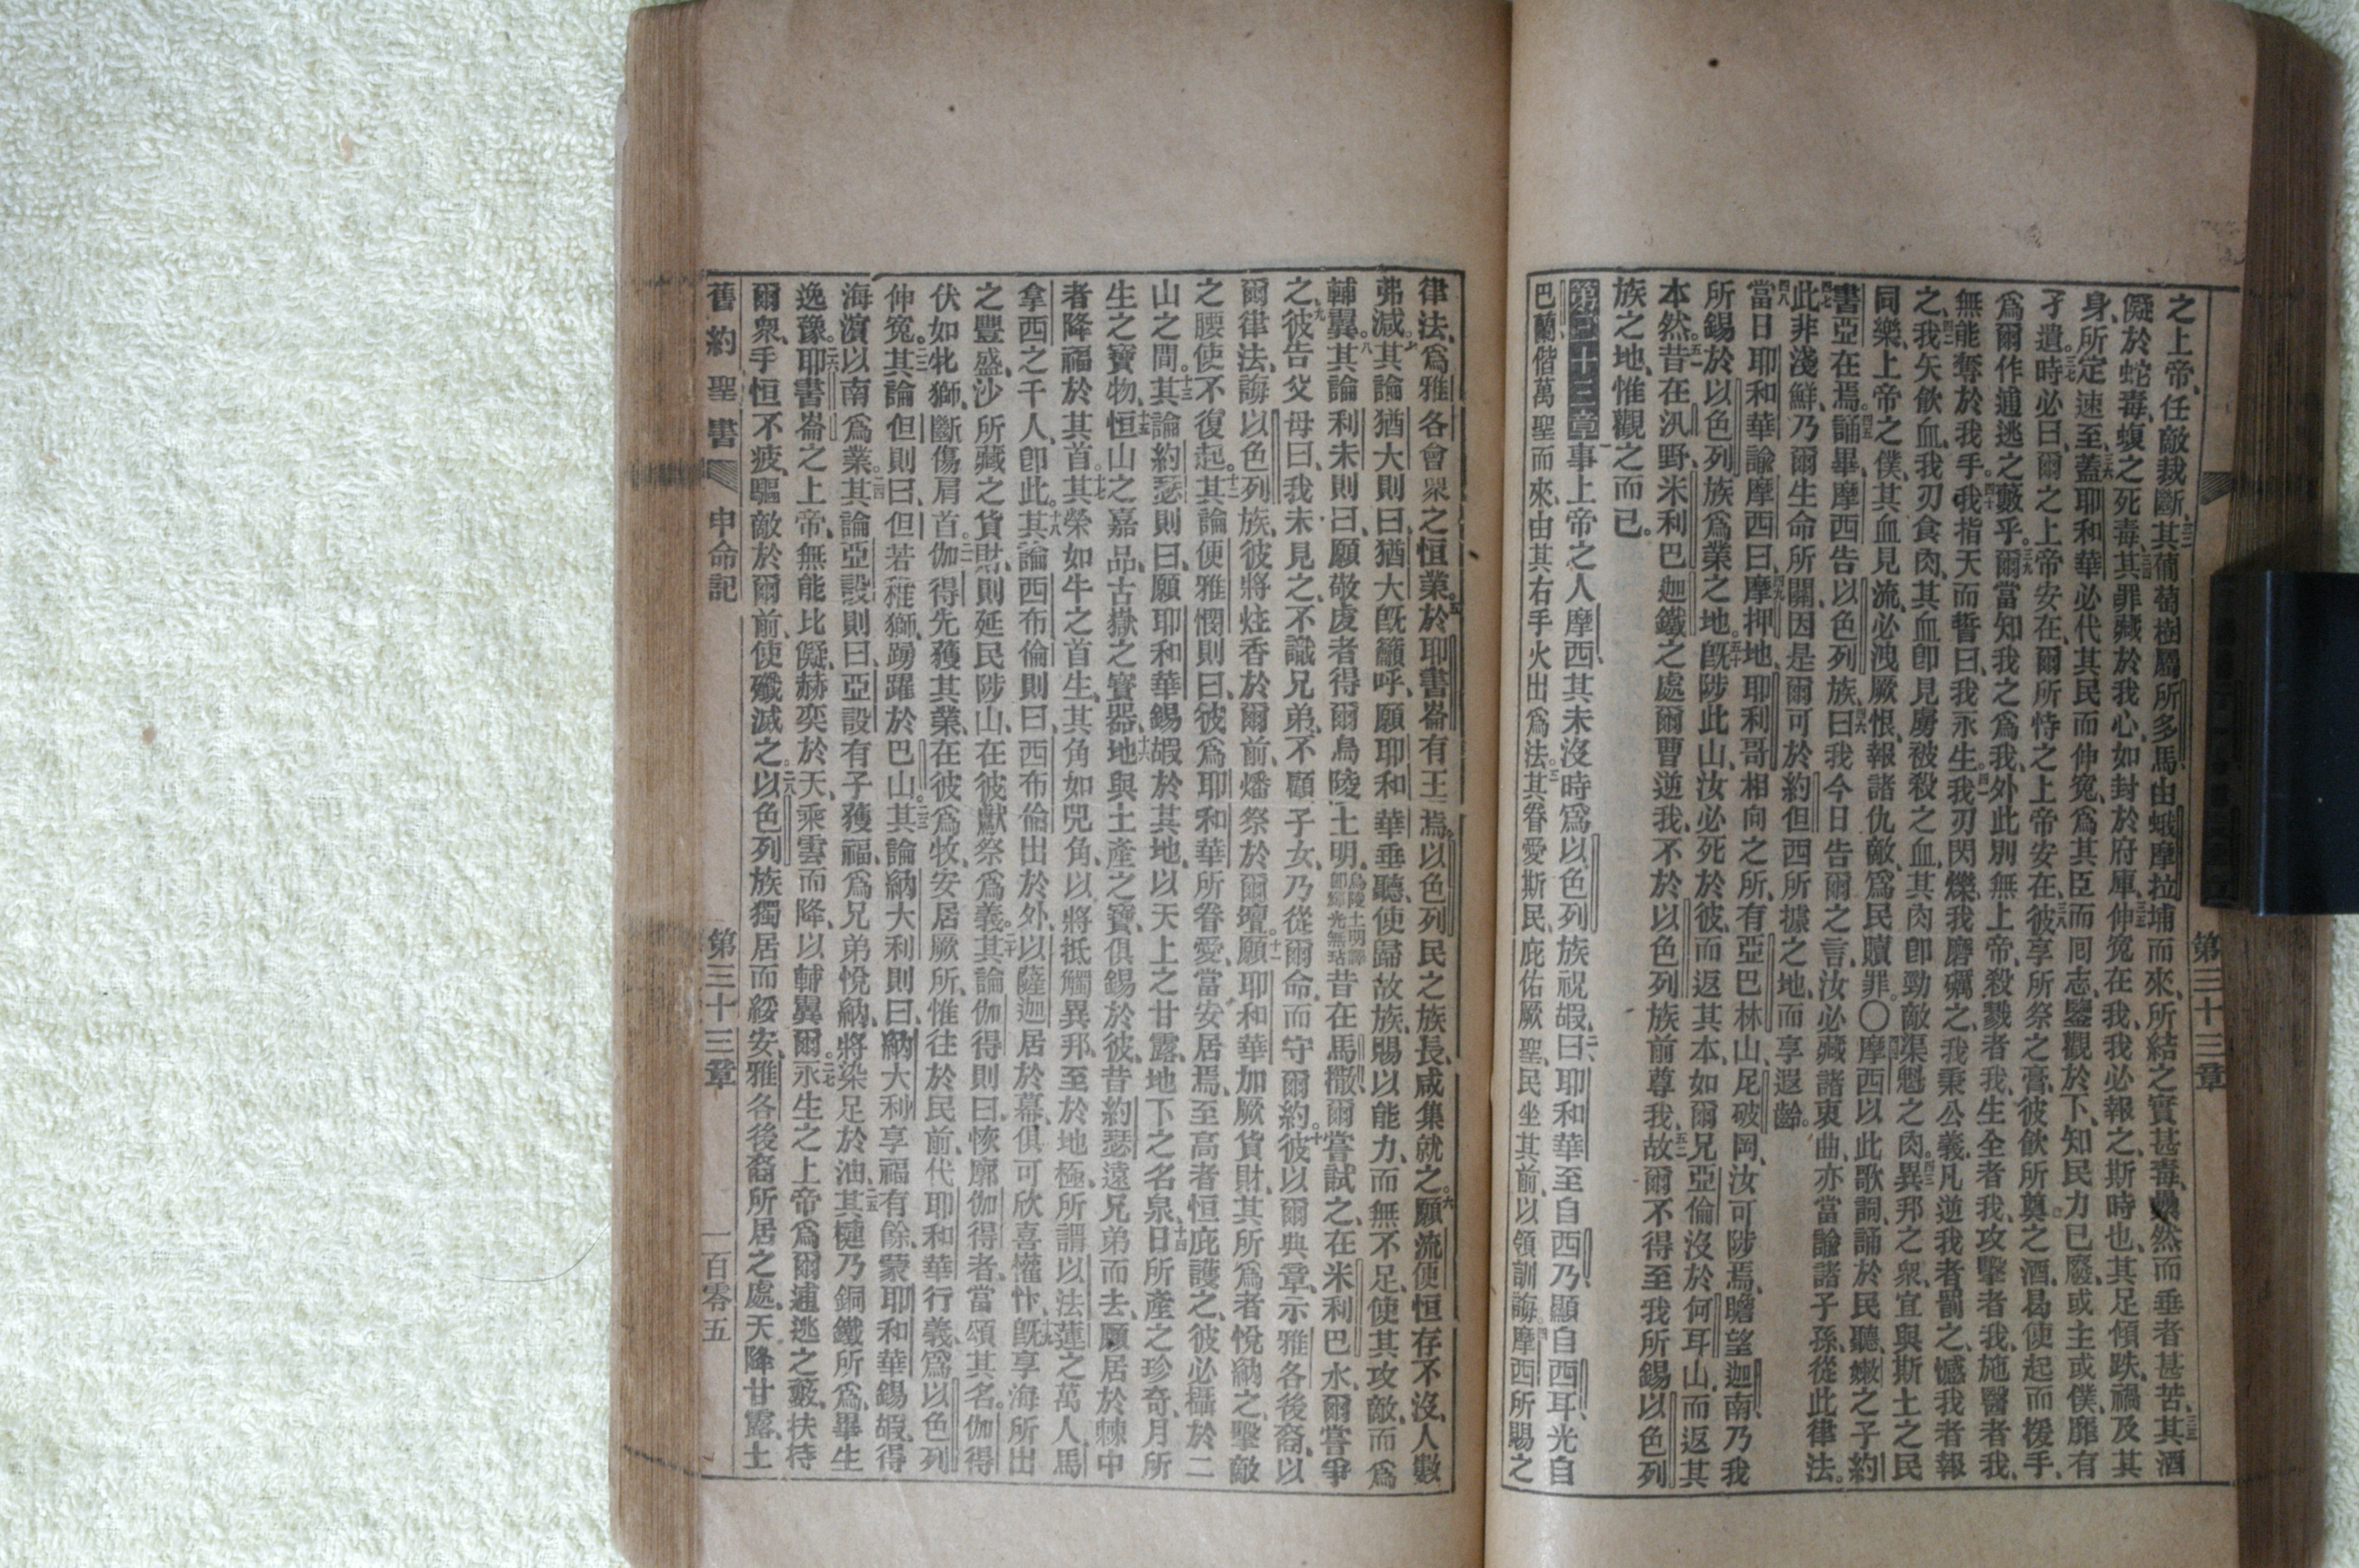 之上帝、任敵裁斷、三二其葡萄樹屬所多馬、由蛾摩拉埔而來、所結之實甚毒、纍然而垂者甚苦、三三其酒
儗於蛇毒、蝮之死毒、三四其罪藏於我心、如封於府庫、三五伸寃在我、我必報之、斯時也、其足傾跌、禍及其
身、所定速至、三六蓋耶和華必代其民而伸寃、爲其臣而囘志、鑒觀於下、知民力已廢、或主或僕、靡有
孑遺。三七時必曰、爾之上帝安在、爾所恃之上帝安在、三八彼享所祭之膏、彼飲所奠之酒、曷使起而援手、
爲爾作逋逃之藪乎。三九爾當知我之爲我、外此別無上帝、殺戮者我、生全者我、攻擊者我、施醫者我、
無能奪於我手。四十我指天而誓曰、我永生、四一我刃閃爍、我磨礪之、我秉公義、凡逆我者罰之、憾我者報
之、四二我矢飲血、我刃食肉、其血卽見虜被殺之血、其肉卽勁敵渠魁之肉、四三異邦之衆、宜與斯土之民
同樂、上帝之僕、其血見流、必洩厥恨、報諸仇敵、爲民贖罪。〇四四摩西以此歌詞、誦於民聽、嫩之子約
書亞在焉。四五誦畢、摩西告以色列族曰、四六我今日告爾之言、汝必藏諸衷曲、亦當諭諸子孫、從此律法。
四七此非淺鮮、乃爾生命所關、因是爾可於約但西所據之地、而享遐齡。
四八當日耶和華諭摩西曰、四九摩押地、耶利哥相向之所、有亞巴林山、尼破岡、汝可陟焉、瞻望迦南、乃我
所錫於以色列族爲業之地。五十旣陟此山、汝必死於彼、而返其本、如爾兄亞倫沒於何耳山、而返其
本然。五一昔在汛野、米利巴迦鐵之處、爾曹逆我、不於以色列族前尊我、五二故爾不得至我所錫以色列
族之地、惟觀之而已。
第三十三章 一事上帝之人摩西、其未沒時、爲以色列族祝嘏、二曰、耶和華至自西乃、顯自西耳、光自
巴蘭、偕萬聖而來、由其右手火出爲法。三其眷愛斯民、庇佑厥聖、民坐其前、以領訓誨。四摩西所賜之
第三十三章
律法、爲雅各會衆之恒業。五於耶書崙有王焉、以色列民之族長、咸集就之。六願流便恒存不沒、人數
弗減。七其論猶大則曰、猶大旣籲呼、願耶和華垂聽、使歸故族、賜以能力、而無不足、使其攻敵、而爲
輔翼。八其論利未則曰、願敬虔者得爾烏陵土明、烏陵土明譯卽輝光無玷昔在馬撒、爾嘗試之、在米利巴水、爾嘗爭
之、九彼告父母曰、我未見之、不識兄弟、不顧子女、乃從爾命、而守爾約。十彼以爾典章、示雅各後裔、以
爾律法、誨以色列族、彼將炷香於爾前、燔祭於爾壇。十一願耶和華加厥貨財、其所爲者悅納之、擊敵
之腰、使不復起。十二其論便雅憫則曰、彼爲耶和華所眷愛、當安居焉、至高者恒庇護之、彼必攝於二
山之間。十三其論約瑟則曰、願耶和華錫嘏於其地、以天上之甘露、地下之名泉、十四日所產之珍奇、月所
生之寶物、十五恒山之嘉品、古嶽之寶器、十六地與土產之寶、俱錫於彼、昔約瑟遠兄弟而去、願居於棘中
者、降福於其首。十七其榮如牛之首生、其角如兕角、以將抵觸異邦、至於地極、所謂以法蓮之萬人、馬
拿西之千人、卽此。十八其論西布倫則曰、西布倫出於外、以薩迦居於幕、俱可欣喜懽忭、十九旣享海所出
之豐盛、沙所藏之貨財、則延民陟山、在彼獻祭爲義。二十其論伽得則曰、恢廓伽得者、當頌其名。伽得
伏如牝獅、斷傷肩首。二一伽得先獲其業、在彼爲牧、安居厥所、惟往於民前、代耶和華行義、爲以色列
伸寃。二二其論但則曰、但若稚獅、踴躍於巴山。二三其論納大利則曰、納大利享福有餘、蒙耶和華錫嘏、得
海濱以南爲業。二四其論亞設則曰、亞設有子獲福、爲兄弟悅納、將染足於油、二五其楗乃銅鐵所爲、畢生
逸豫。二六耶書崙之上帝、無能比儗、赫奕於天、乘雲而降、以輔翼爾。二七永生之上帝、爲爾逋逃之藪、扶持
爾衆、手恒不疲、驅敵於爾前、使殲滅之。二八以色列族獨居而綏安、雅各後裔所居之處、天降甘露、土
舊約聖書 申命記 第三十三章 一百零五